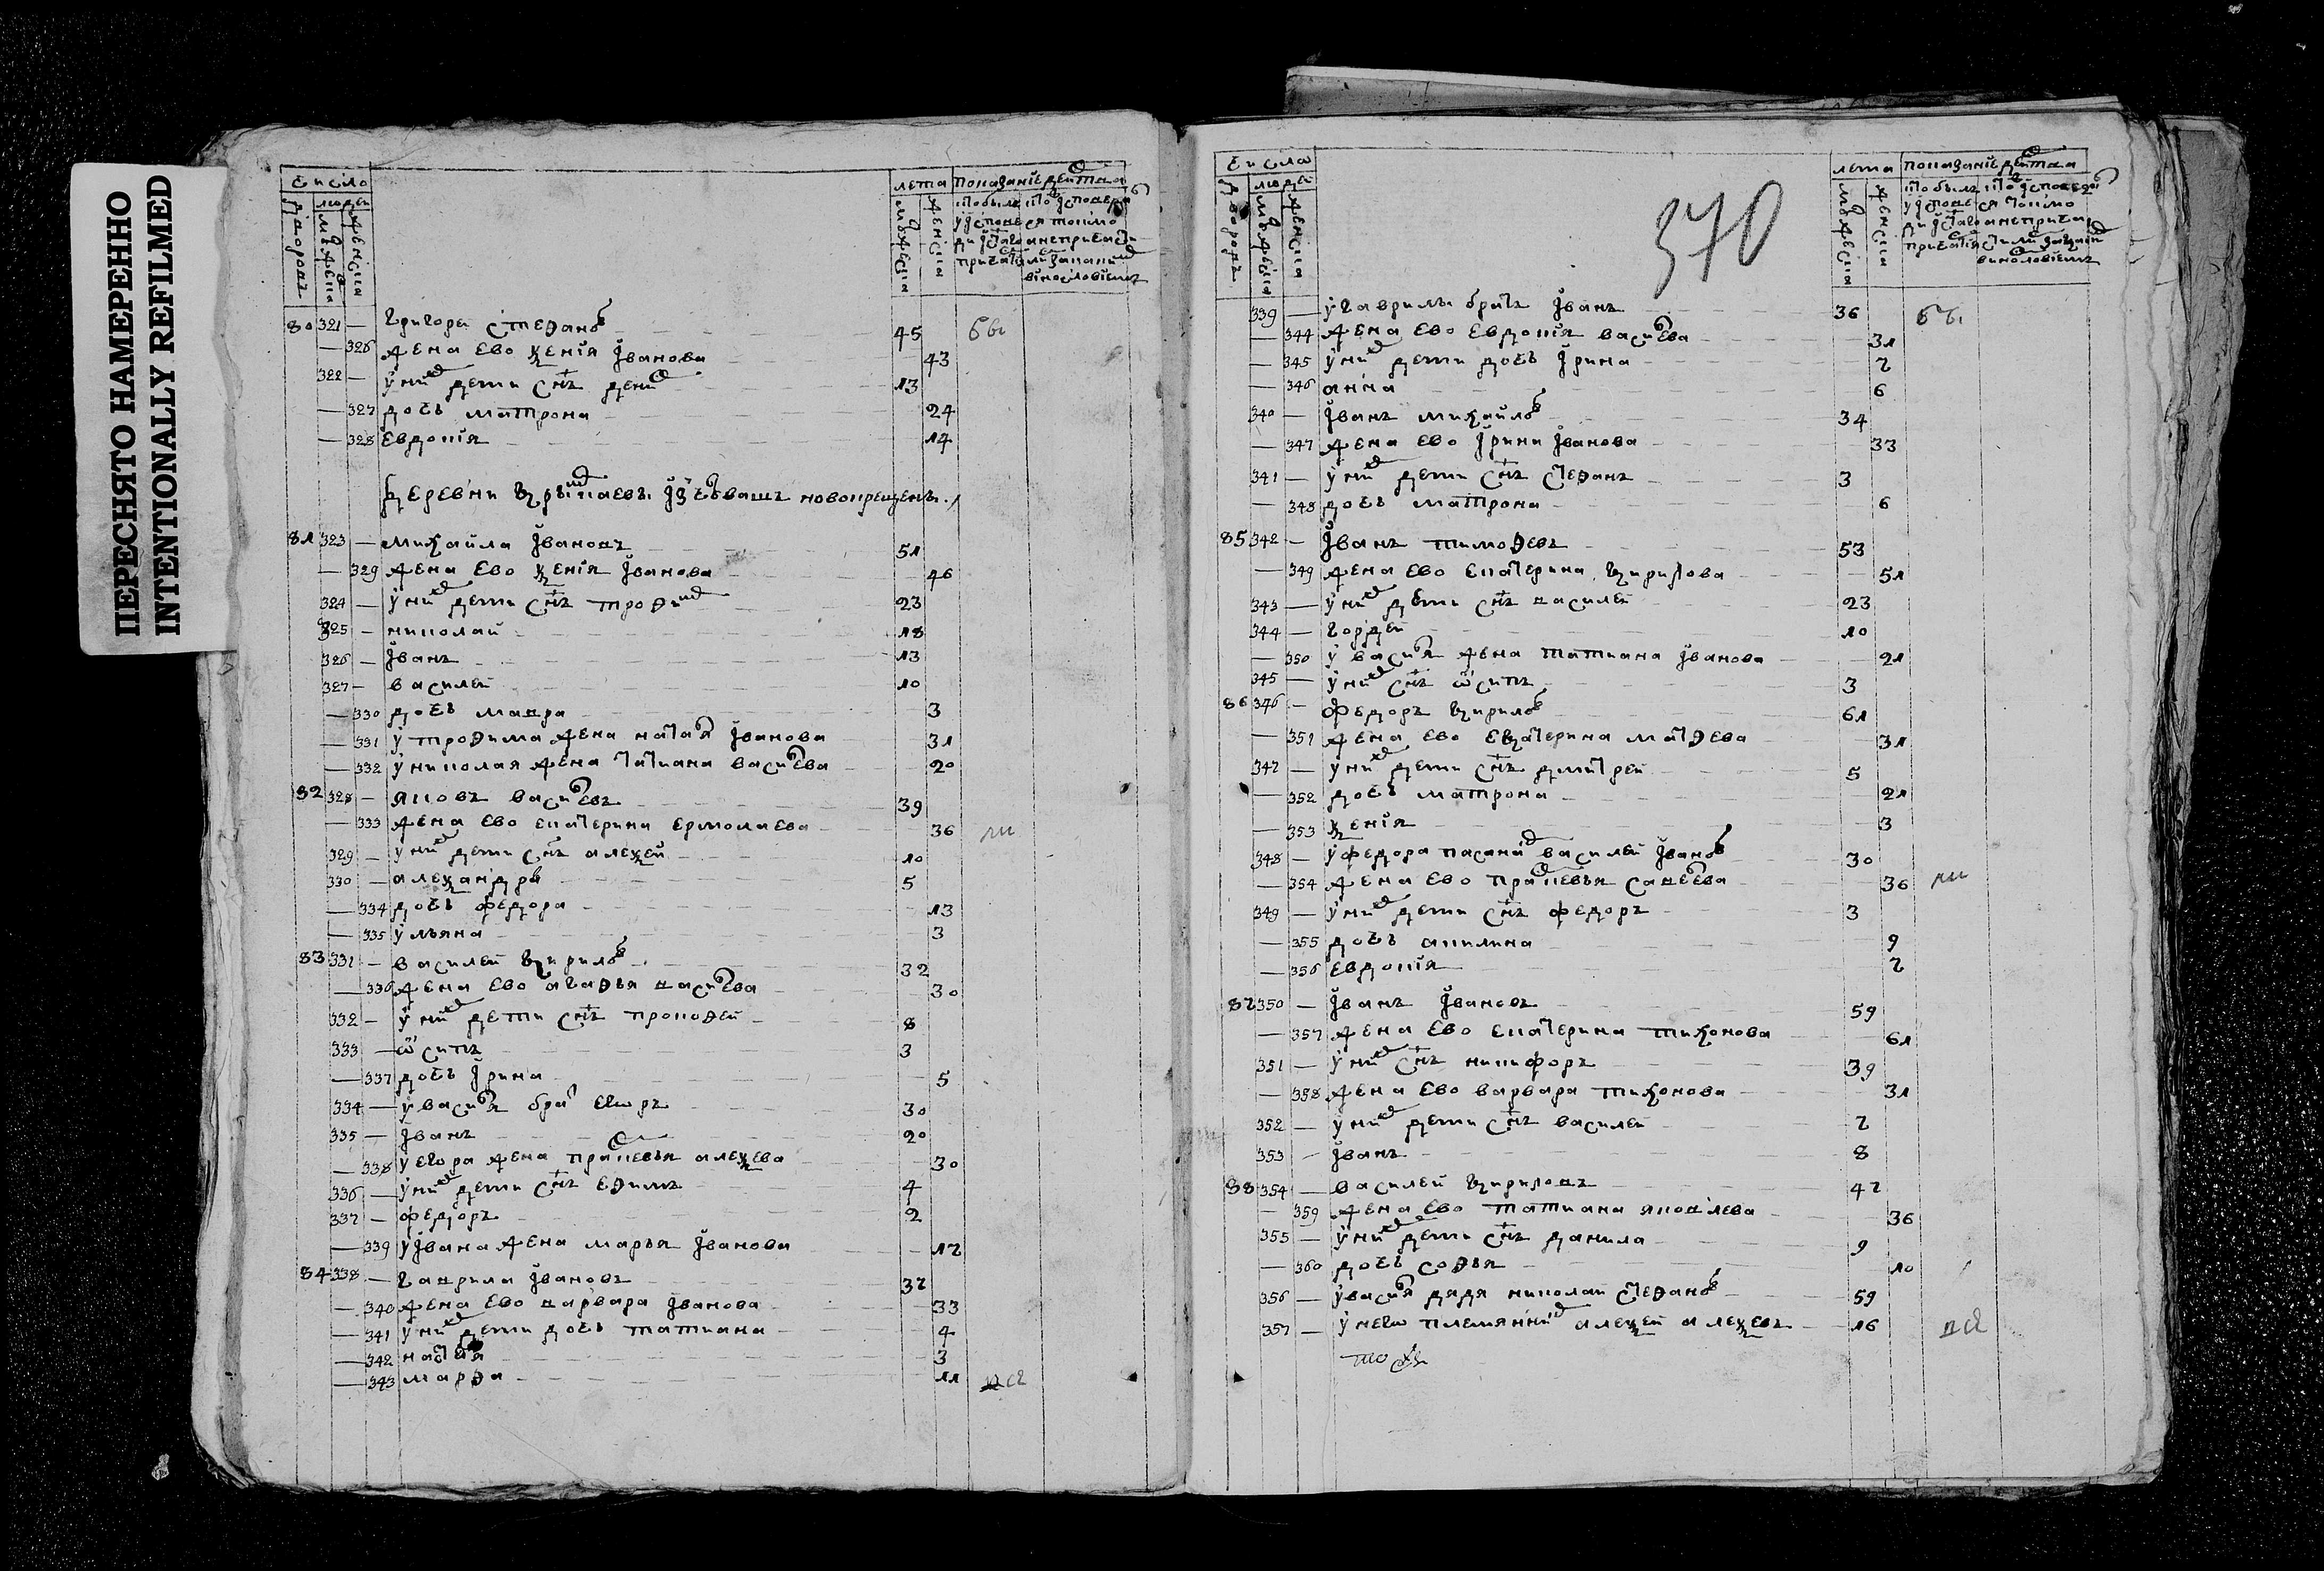 ПЕРЕСНЯТО НАМЕРЕННО
INTENTIONALLY REFILMED
число
дворовъ
людей
мужеска
женска
лета
мужеска
женска
показание действа
80 321 — григореи стефановъ 45 бы
— 326 жена ево ѯения iванова 43
322 — у нихъ дети снъ денисъ 13
— 327 дочь матрона 24
— 328 евдокия 14
83 331 — василеи кириловъ 32
81 323 — михаила iвановъ 51
— 329 жена ево ѯения iванова 46
324 — у нихъ дети снъ трофимъ 23
325 — николаи 18
326 — iванъ 13
327 — василеи 10
— 330 дочь мавра 3
— 331 у трофима жена наталя iванова 31
— 332 у николая жена татиана василева 20
82 328 — яковъ василевъ 39
— 333 жена ево екатерина ермолаева 36
329 — у нихъ дети снъ алеѯеи 10
330 — алеѯандръ 5
— 334 дочь федора 13
— 335 ульяна 3
— 336 жена ево агафья василева 30
332 — у нихъ дети снъ прокофеи 8
333 — ѡсипъ 3
— 337 дочь iрина 5
334 — у василя брат егоръ 30
335 — iванъ 20
— 338 у егора жена прасковья алеѯева 30
336 — у нихъ дети снъ ефимъ 4
337 — федоръ 2
— 339 у iвана жена марья iванова 17
84 338 — гаврила iвановъ 37
— 340 жена ево варвара iванова 33
— 341 у нихъ дети дочь татиана 4
— 342 настася 3
— 343 марфа 11
370
число
дворовъ
людей
мужеска
женска
лета
мужеска
женска
показание действа
339 — у гаврилы братъ iванъ 36 бы
— 344 жена ево евдокия василева 31
— 345 у нихъ дети дочь iрина 7
— 346 анна 6
340 — iванъ михаиловъ 34
— 347 жена ево iрина iванова 33
341 — у нихъ дети снъ стефанъ 3
— 348 дочь матрона 6
85 342 — iванъ тимофевъ 53
— 349 жена ево екатерина кирилова 51
343 — у нихъ дети снъ василеи 23
344 — гордеи 10
— 350 у василя жена татиана iванова 21
345 — у нихъ снъ ѡсипъ 3
86 346 — федоръ кириловъ 61
— 351 жена ево екатерина матфева 31
347 — у нихъ дети снъ дмитреи 5
— 352 дочь матрона 21
— 353 ѯения 3
348 — у федора пасынокъ василеи iвановъ 30
— 354 жена ево прасковья савелева 36
349 — у нихъ дети снъ федоръ 3
— 355 дочь акилина 9
— 356 евдокия 7
87 350 — iванъ iвановъ 59
— 357 жена ево екатерина тихонова 61
351 — у нихъ снъ никифоръ 39
— 358 жена ево варвара тихонова 31
352 — у нихъ дети снъ василеи 7
353 — iванъ 8
88 354 — василеи кириловъ 47
— 359 жена ево татиана яковлева 36
355 — у нихъ дети снъ данила 9
— 360 дочь софья 10
356 — у василя дядя николаи стефановъ 59
357 — у нево племянникъ алеѯеи алеѯевъ 16